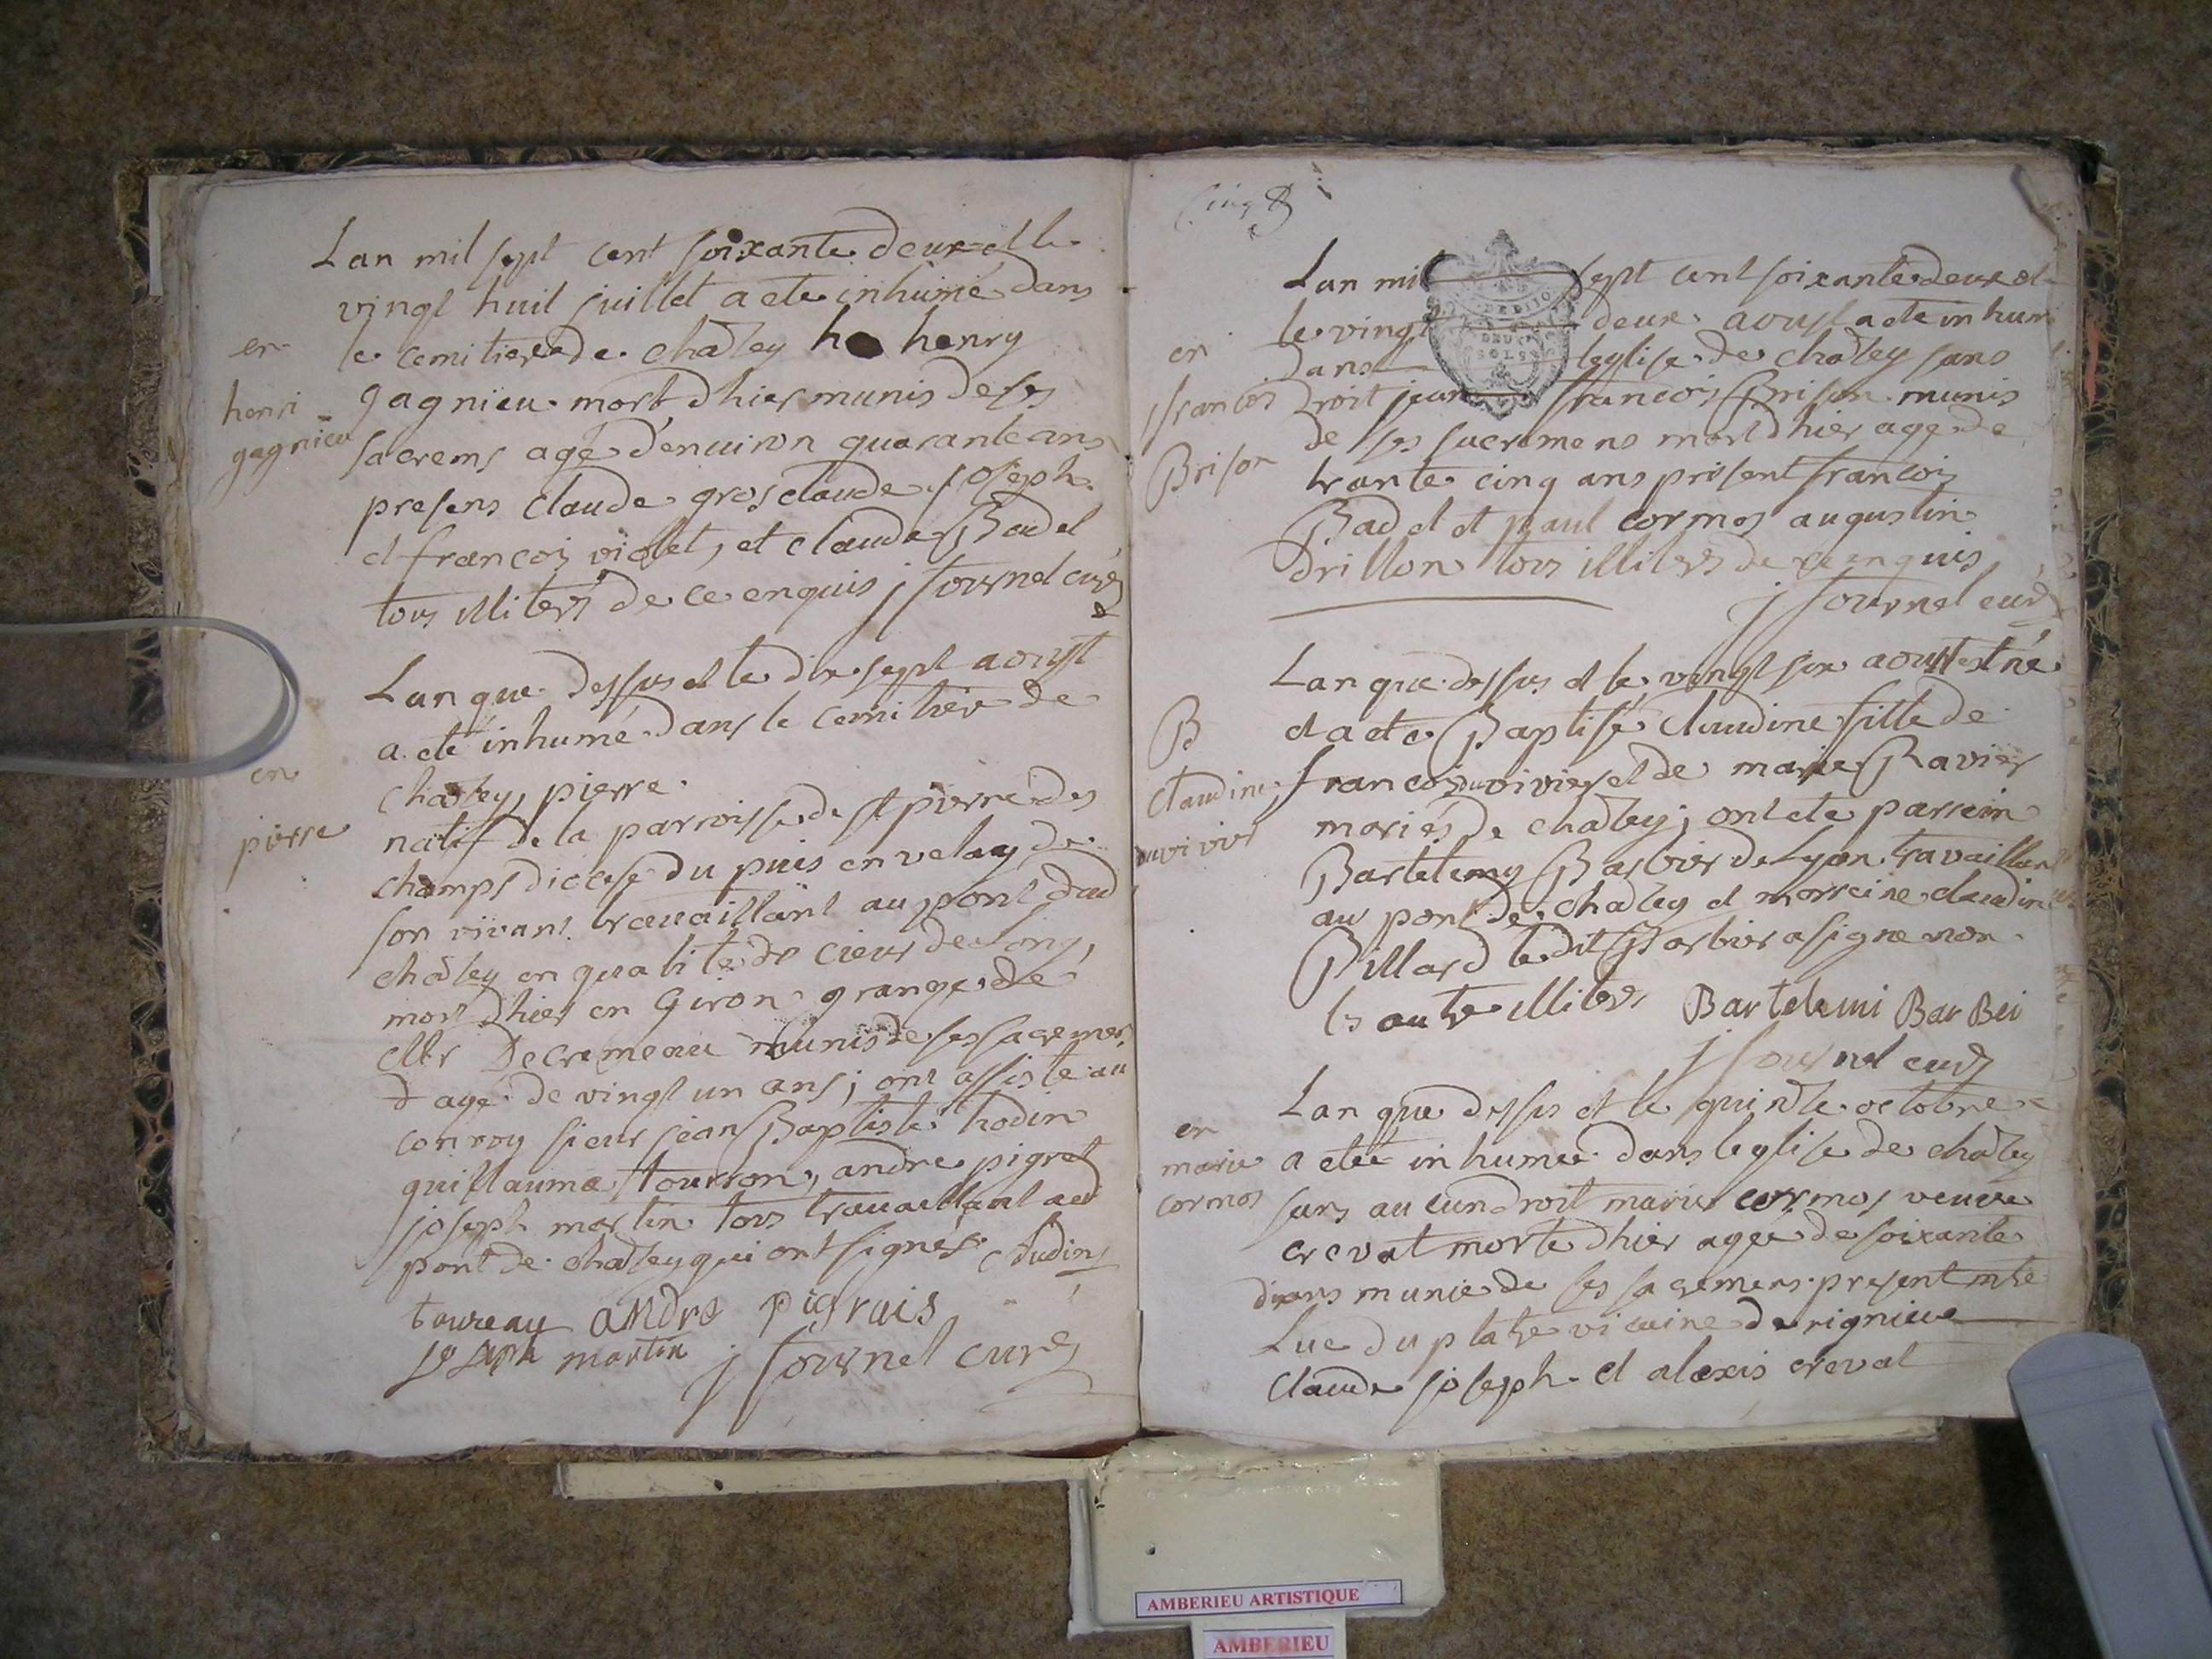 Lan mil sept cent soixante deux et le
vingt huit juillet a ete inhumé dans
le cemitiere de chasley henry
gagnieu mort dhier munis de ses
sacrems agé denuiron quarante ans
presens claude grosclaude joseph
et francois violet, et claude Badel
tous illiterés de ce enquis j fournel curé
en
henri
gagnieu
Lan que dessus et le dix sept aoust
a eté inhumé dans le cemitiere de
chasley, pierre
natif de la parroisse de st pierre des
champs diocese du puis en velay de
son vivant travaillant au pont dud
chasley en qualité de cieur de long,
mort dhier en Giron grange de
Decremeau munis de ses sacremens
agé de vingt un ans; ont assisté au
convoy sieur jean Baptiste hodin
guillaume tourron, andre pigret
joseph martin tous travaillant aud
pont de chasley qui ont signes
en
pierre
toureau andre pigrais
joseph martin j fournel curé
Cinq
Lan mil sept cent soixante deux et
le vingt deux aoust a ete inhumé
dans leglise de chasley sans
droit francois Brison munis
de ses sacremens mort dhier agé de
trante cinq ans present francois
Badel et paul cormos augustin
drillon tous illiterés de ce enquis
j fournel curé
en
francois
Brison
Lan que dessus et le vingt six aoust est né
et a ete Baptisé claudine fille de
francois duvivier et de marie Ravier
mariés de chasley, ont ete parrein
Bartelemy Barbier de Lyon travaillant
au pont de chasley et marreine claudine
Billard ledit Barbier a signe non
les autre illiterés Bartelemi BarBei
j fournel curé
B
claudine
duvivier
Lan que dessus et le quinze octobre
a eteé inhumée dans leglise de chasley
sans aucun droit marie cormos veuve
crevat morte dhier ageé de soixante
dix ans munie de ses sacremens present mre
Luc duplatre vicaire de rignieu
claude joseph et alexis crevat
en
marie
cormos
DEUX
SOLS
AMBERIEU ARTISTIQUE
AMBERIEU